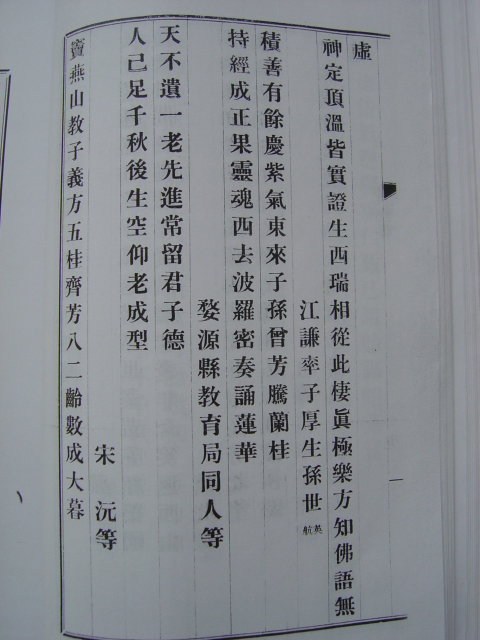 虛
神定頂溫皆實證生西瑞相從此棲眞極樂方知佛語無
江謙率子厚生孫世英航
積善有餘慶紫氣東來子孫曾芳騰蘭桂
持經成正果靈魂西去波羅密奏誦蓮華
婺源縣教育局同人等
天不遺一老先進常留君子德
人已足千秋後生空仰老成型
宋沅等
竇燕山教子義方五桂齊芳八二齡數成大暮
一